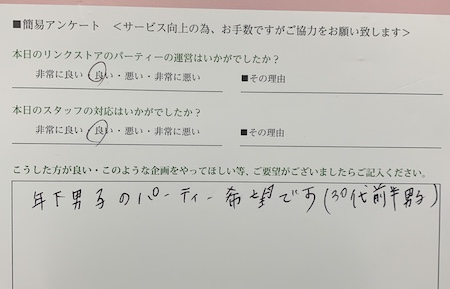 ■簡易アンケート ＜サービス向上の為、お手数ですがご協力をお願い致します＞
本日のリンクストアのパーティーの運営はいかがでしたか？
非常に良い・良い・悪い・非常に悪い ■その理由
本日のスタッフの対応はいかがでしたか？
非常に良い・良い・悪い・非常に悪い ■その理由
こうした方が良い・このような企画をやってほしい等、ご要望がございましたらご記入ください。
年下男子のパーティー希望です(30代前半男子)